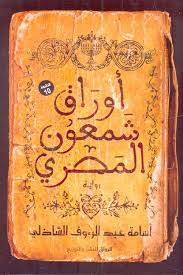 الطبعة
10
أوراق
شمعون
المصري
رواية
أسامة عبد الرؤوف الشاذلي